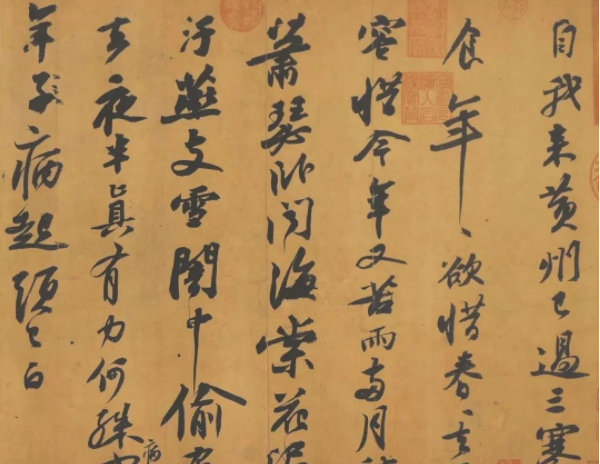 自我来黃州已過三寒
食年〻欲惜春〻去
容惜今年又苦雨兩月秋
蕭瑟卧聞海棠花泥
汙燕支雪闇中偷負
去夜半真有力何殊
病
年子病起頭已白